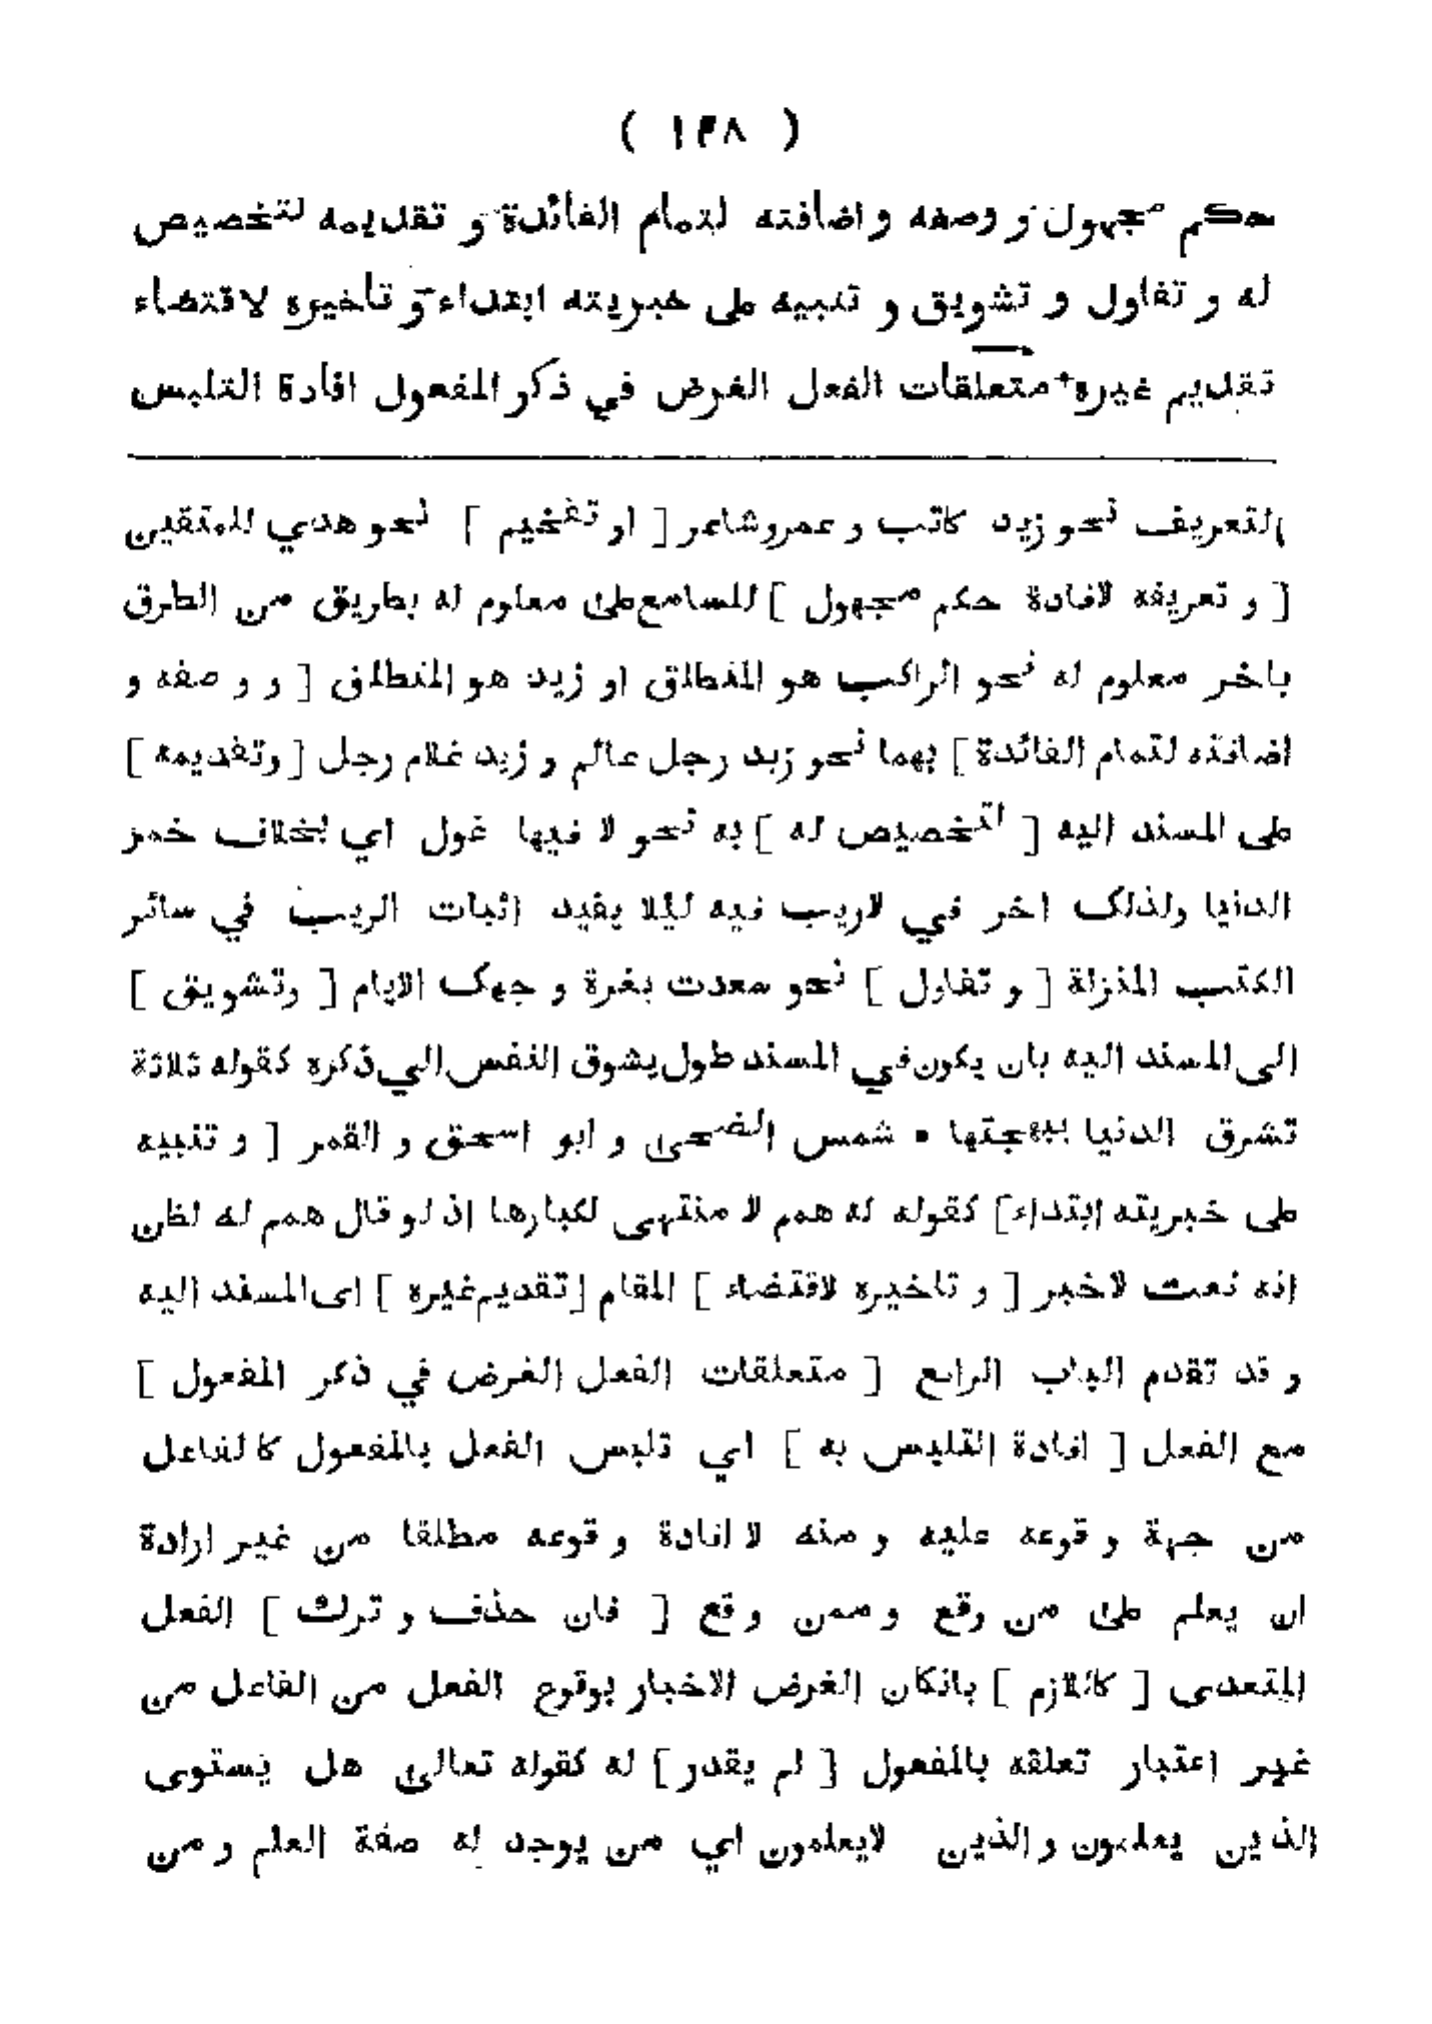 ( ١٣٨ )
حكم مجهول و وصفه و اضافته لتمام الفائدة و تقديمه لتخصيص
له و تفاول و تشويق و تنبيه على خبريته ابتداء و تاخيره لاقتضاء
تقديم غيره متعلقات الفعل الغرض في ذكر المفعول افادة التلبس
التعريف نحو زيد كاتب و عمرو شاعر [ او تفخيم ] نحو هدي للمتقين
[ و تعريفه لافادة حكم مجهول ] للسامع على معلوم له بطريق من الطرق
باخر معلوم له نحو الراكب هو المنطلق او زيد هو المنطلق [ و وصفه و
اضافته لتمام الفائدة ] بهما نحو زيد رجل عالم و زيد غلام رجل [ وتقديمه ]
على المسند اليه [ لتخصيص له ] به نحو لا فيها غول اي بخلاف خمر
الدنيا ولذلك اخر في لاريب فيه ليلا يفيد اثبات الريب في سائر
الكتب المنزلة [ و تفاول ] نحو سعدت بغرة و جهك الايام [ وتشويق ]
الى المسند اليه بان يكون في المسند طول يشوق النفس الي ذكره كقوله ثلاثة
تشرق الدنيا ببهجتها • شمس الضحى و ابو اسحق و القمر [ و تنبيه
على خبريته ابتداء ] كقوله له همم لا منتهى لكبارها اذ لو قال همم له لظن
انه نعت لاخبر [ و تاخيره لاقتضاء ] المقام [ تقديم غيره ] اى المسند اليه
و قد تقدم الباب الرابع [ متعلقات الفعل الغرض في ذكر المفعول ]
مع الفعل [ افادة التلبس به ] اي تلبس الفعل بالمفعول كالفاعل
من جهة و قوعه عليه و منه لا افادة و قوعه مطلقا من غير ارادة
ان يعلم على من وقع و ممن و قع [ فان حذف و ترك ] الفعل
المتعدى [ كاللازم ] بانكان الغرض الاخبار بوقوع الفعل من الفاعل من
غير اعتبار تعلقه بالمفعول [ لم يقدر ] له كقوله تعالى هل يستوى
الذين يعلمون و الذين لايعلمون اي من يوجد له صفة العلم و من